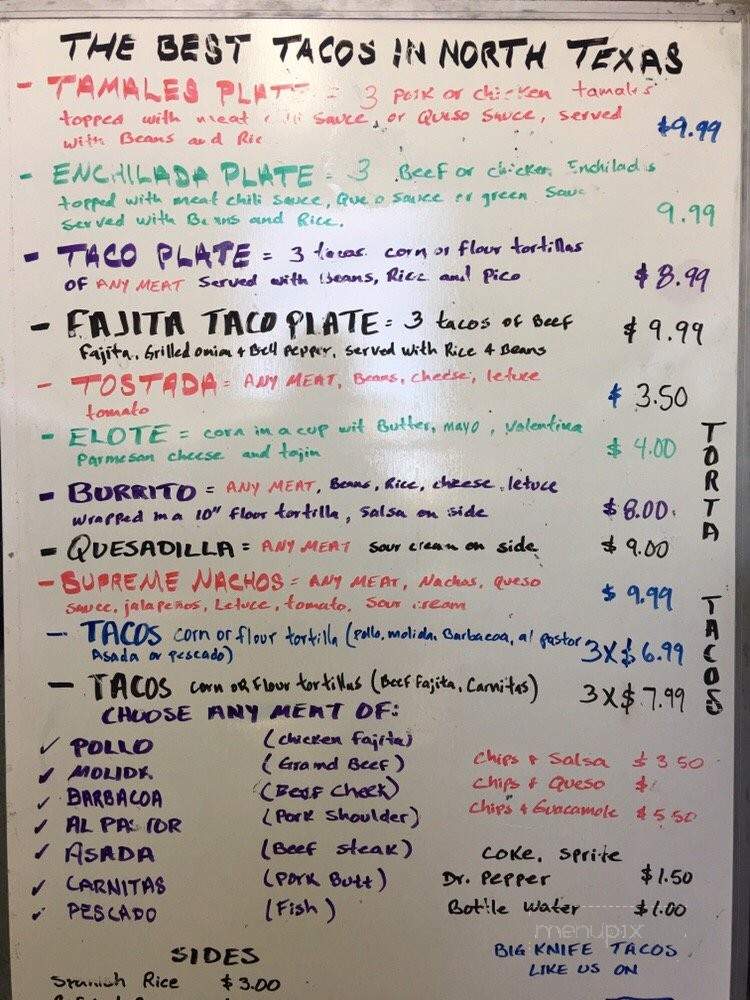 THE BEST TACOS IN NORTH TEXAS
- TAMALES PLATE = 3 pork or chicken tamales
topped with meat chili sauce, or Queso Sauce, served $9.99
with Beans and Ric
- ENCHILADA PLATE = 3 Beef or chicken Enchiladas
topped with meat chili sauce, Queso sauce or green Sauc 9.99
Served with Beans and Rice.
- TACO PLATE = 3 tacos corn or flour tortillas
OF ANY MEAT Served with Beans, Rice and Pico $8.99
- FAJITA TACO PLATE = 3 tacos of Beef $9.99
Fajita, Grilled onion & Bell Pepper, served with Rice & Beans
- TOSTADA = ANY MEAT, Beans, cheese, letuce $3.50
tomato
- ELOTE = corn in a cup wit Butter, mayo, Valentina $4.00
Parmesan cheese and tajin
- BURRITO = ANY MEAT, Beans, Rice, cheese, letuce
wrapped in a 10" flour tortilla, Salsa on side $8.00
- QUESADILLA = ANY MEAT sour cream on side $9.00
- SUPREME NACHOS = ANY MEAT, Nachos, Queso
sauce, jalapeños, Letuce, tomato, Sour cream $9.99
- TACOS corn or flour tortilla (pollo, molida, Barbacoa, al pastor 3X$6.99
Asada or pescado)
- TACOS corn or flour tortillas (Beef Fajita, Carnitas) 3X$7.99
TORTA TACOS
CHOOSE ANY MEAT OF:
✓ POLLO (chicken Fajita)
✓ MOLIDA (Graund Beef)
✓ BARBACOA (Beef Cheek)
✓ AL PASTOR (Pork Shoulder)
✓ ASADA (Beef steak)
✓ CARNITAS (Pork Butt)
✓ PESCADO (Fish)
Chips & Salsa $3.50
Chips & Queso $
Chips & Guacamole $5.50
COKE, Sprite
Dr. Pepper $1.50
Bottle Water $1.00
menupix
BIG KNIFE TACOS
LIKE US ON
SIDES
Spanish Rice $3.00